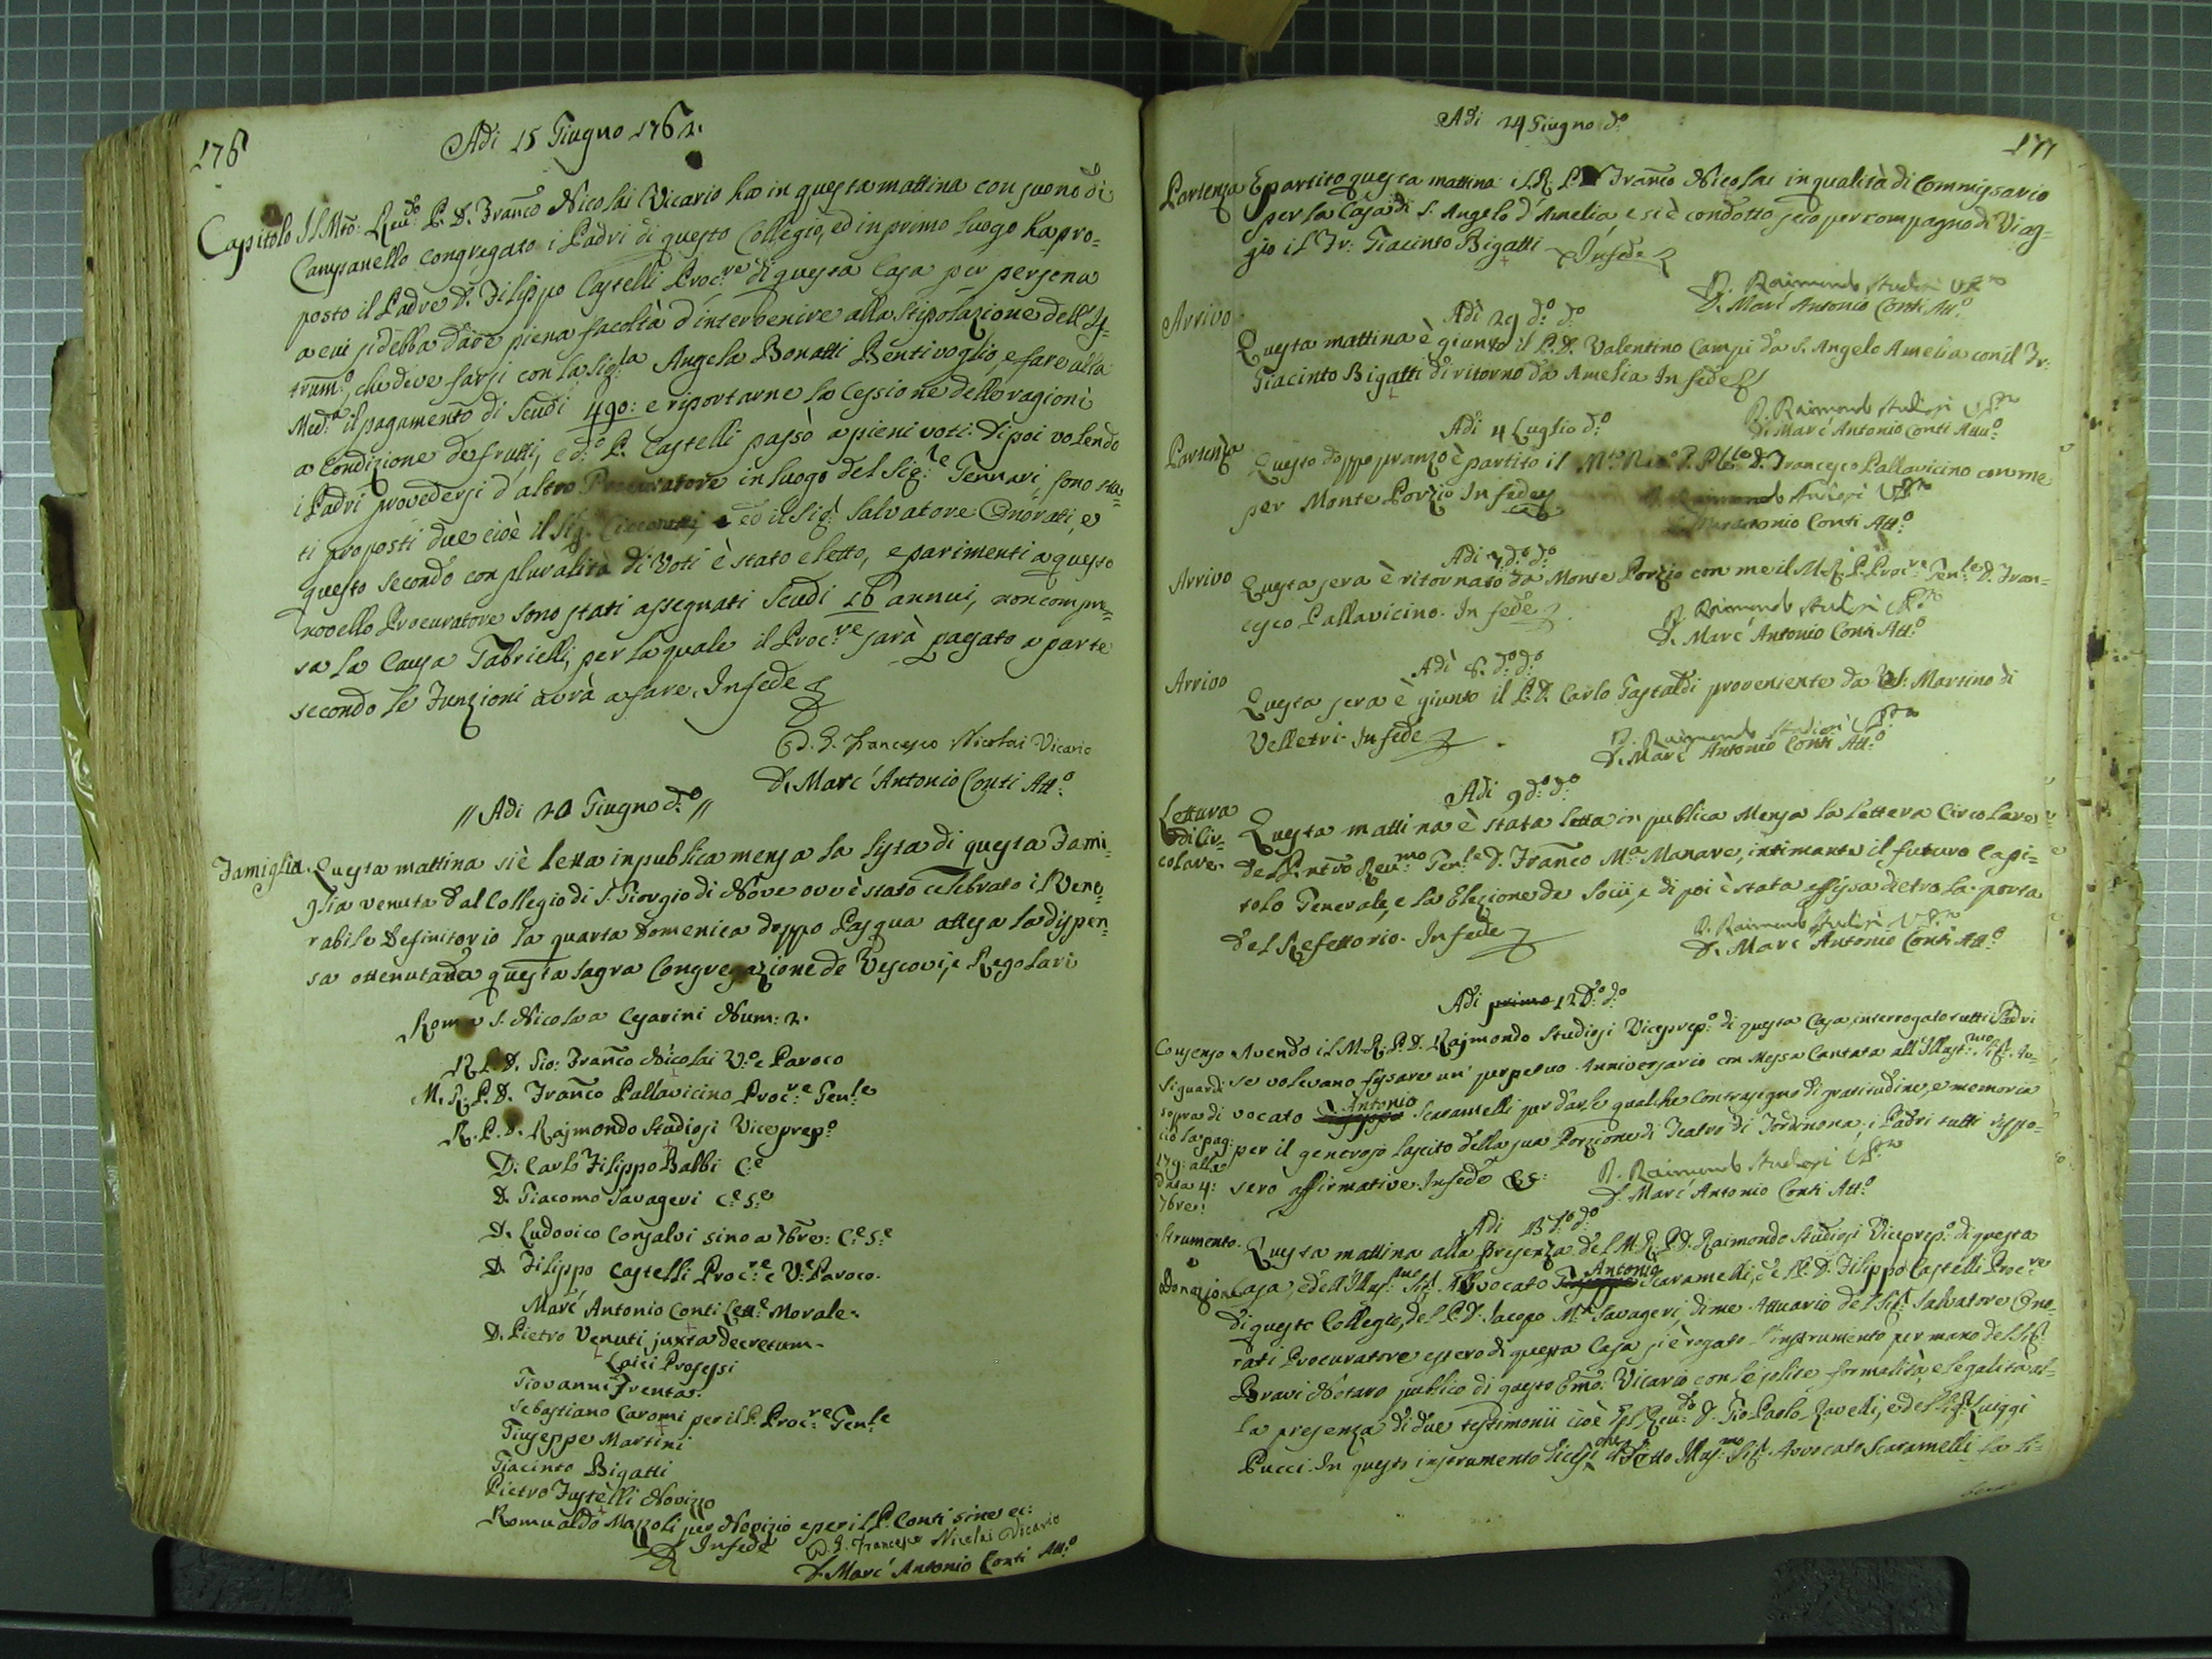 176
Adi 15 Giugno 1762.
Capitolo Il Mto: Reudo: P. D. Franco Nicolai Vicario ha in questa mattina con suono di
Campanello congregato i Padri di questo Collegio, ed in primo luogo ha pro=
posto il Padre D. Filippo Castelli Procre: di questa Casa per persona
a cui si debba dare piena facoltà d'intervenire alla Stipolazione dell'I=
trumo:, che deve farsi con la Sigra Angela Bonatti Bentivoglio, e fare alla
Meda: il pagamento di Scudi 490: e riportarne la Cessione delle ragioni
a Condizione de frutti, e do: P. Castelli passò a pieni voti. Di poi volendo
i Padri provedersi d'altro Procuratore in luogo del Sige: Gennari sono sta=
ti proposti due cioè il Sig. ed il Sig: Salvatore Onorati, e
questo secondo con pluralità di Voti è stato eletto, e parimenti a questo
novello Procuratore sono stati assegnati Scudi 16 annui, non compre=
sa la Causa Gabrielli, per la quale il Procre: sarà pagato a parte
secondo le Funzioni avrà a fare. In fede
D. G. Francesco Nicolai Vicario
D. Marc' Antonio Conti Atto:
// Adi 20 Giugno do: //
Famiglia. Questa mattina si è letta in publica mensa la lista di questa Fami=
glia venuta dal Collegio di S. Giorgio di Nove ove è stato celebrato il Vene=
rabile Definitorio la quarta Domenica doppo Pasqua attesa la dispen=
sa ottenuta da questa sagra Congregazione de Vescovi, e Regolari
Roma S. Nicola a Cesarini Num: 2.
R. P. D. Gio: Franco Nicolai Vo: e Paroco
M. R. P. D. Franco Pallavicino Procre: Genle
R. P. D. Rajmondo Studiosi Viceprepo:
D. Carlo Filippo Balbi Ce:
D. Giacomo Savageri Ce: Se:
D. Ludovico Consalvi sino a 7bre: Ce: Se:
D. Filippo Castelli Procre: e Ve: Paroco.
Marc' Antonio Conti Lette: Morale.
D. Pietro Venuti juxta decretum.
Laici Professi
Giovanni Trentas.
Sebastiano Caromi per il P. Procre: Genle
Giuseppe Martini
Giacinto Bigatti
Pietro Fustelli Novizzo
Romualdo Mazoli per Novizio e per il P. Conti sine ec:
In fede D. G. Francesco Nicolai Vicario
D. Marc' Antonio Conti Atto:
177
Adi 24 Giugno do:
Partenza E partito questa mattina il R. P. D. Franco Nicolai in qualità di Commissario
per la Casa di S. Angelo d'Amelia, e si è condotto seco per compagno di Viag=
gio il Fr: Giacinto Bigatti In fede
D. Raimondo Studiosi
D. Marc' Antonio Conti Atto:
Arrivo
Adi 29 do: do:
Questa mattina è giunto il P. D. Valentino Campi da S. Angelo Amelia con il Fr:
Giacinto Bigatti di ritorno da Amelia In fede
D. Raimondo Studiosi
D. Marc' Antonio Conti Attuo:
Adi 4 Luglio do:
Partenza
Questo doppo pranzo è partito il D. Francesco Pallavicino con me
per Monte Porzio In fede
D. Raimondo Studiosi
Marcantonio Conti Atto:
Adi 7 do: do:
Arrivo Questa sera è ritornato da Monte Porzio con me il M. R. P. Procre: Genle D. Fran=
cesco Pallavicino. In fede
D. Raimondo Studiosi
D. Marc' Antonio Conti Atto:
Adi 8. do: do:
Arrivo
Questa sera è giunto il P. D. Carlo Gastaldi proveniente da S. Martino di
Velletri. In fede
D. Raimondo Studiosi
D. Marc' Antonio Conti Atto:
Adi 9 do: do:
Lettura
di Cir=
colare
Questa mattina è stata letta in publica Mensa la Lettera Circolare
del P. nrõ Reumo: Genle D. Franco Ma: Manare, intimante il futuro Capi=
tolo Generale, e la Elezione de Socii, e di poi è stata affissa dietro la porta
del Refettorio. In fede
D. Raimondo Studiosi
D. Marc' Antonio Conti Atto:
Adi primo 12 do: do:
Consenso Avendo il M. R. P. D. Rajmondo Studiosi Viceprepo: di questa Casa interrogato tutti i Padri
Si guardi se volevano fissare un' perpetuo Anniversario con Messa Cantata all' Illustmo: Sig. Av=
sopra di vocato Antonio Scaramelli per darle qualche Contrasegno di gratitudine, e memoria
ciò la pag: per il generoso lascito della sua Porzione di Teatro di Tordenona. i Padri tutti rispo=
179: alla
data 4: sero affirmative. In fede
7bre:
D. Raimondo Studiosi
D. Marc' Antonio Conti Atto:
Adi 13 do: do:
Strumento. Questa mattina alla presenza del M. R. P. D. Raimondo Studiosi Viceprepo: di questa
Donazione Casa, e dell' Illusmo: Sig: Avvocato Antonio Scaramelli, del P. D. Filippo Castelli Procre
di questo Collegio, del P. D. Jacopo Ma: Savageri, di me Attuario del Sig: Salvatore Ono=
rati Procuratore estero di questa Casa si è rogato l'instrumento per mano del Sig:
Bravi Notaro publico di questo Emo: Vicario con le solite formalità e legalità al=
la presenza di due testimonii cioè del Reudo: D. Gio Paolo Ravelli, e del Sig: Luiggi
Pucci. In questo instrumento dicesi che detto Illusmo: Sig: Avvocato Scaramelli la li=